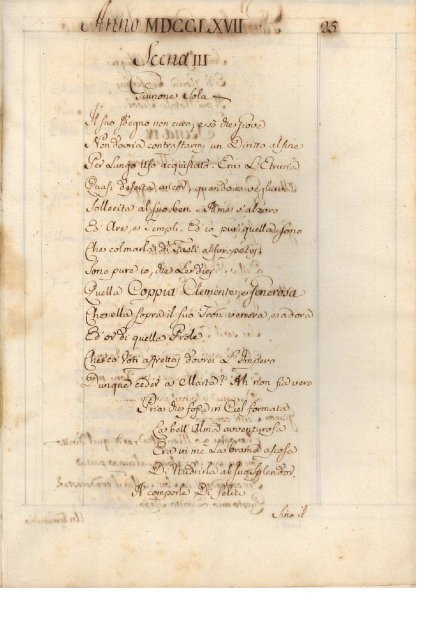 Anno MDCCLXVII 95
Scena III
Giunone Sola
Il suo sdegno non curo, e sò che Giove
Non dovria contrastarmi un Diritto al fine
Per lungo Uso acquistato. Era L'Etruria
Quasi deserta ancor, quando io vegliava
Sollecita al suo ben. A me s'alzaro
Ed Are, e Templi. Ed io pur quella sono
Che
Sono pur io, che Le diei
Quella Coppia Clemente, e Generosa
Ch'ella sopra il suo Tron venera, e adora
Ed or di quella Prole
Che co' Voti affrettai dovrei L'Impero
Dunque ceder a Marte? Ah non fia vero
Pria che fosse in Ciel formata
La bell'Alma avventurosa
Era in me La brama ascosa
Di Nudrirla al suo splendor
A comporle Di felici
Sino il